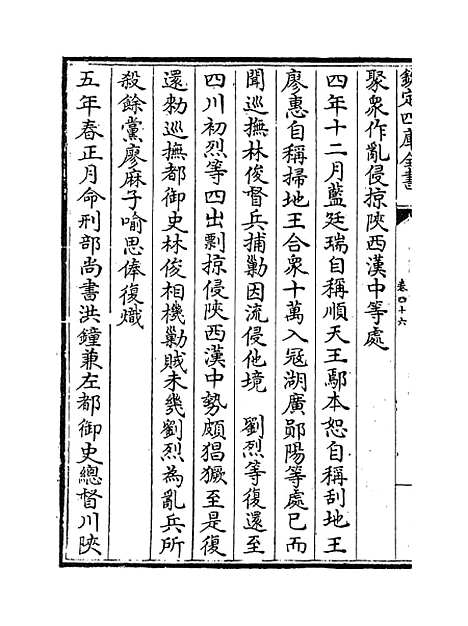 欽定四庫全書
卷四十六
聚衆作亂侵掠陜西漢中等處
四年十二月藍廷瑞自稱順天王鄢本恕自稱刮地王
廖惠自稱掃地王合衆十萬入冦湖廣鄖陽等處已而
聞巡撫林俊督兵捕勦因流侵他境 劉烈等復還至
四川初烈等四出剽掠侵陜西漢中勢頗猖獗至是復
還勅巡撫都御史林俊相機勦賊未幾劉烈為亂兵所
殺餘黨廖麻子喻思俸復熾
五年春正月命刑部尚書洪鐘兼左都御史總督川陜